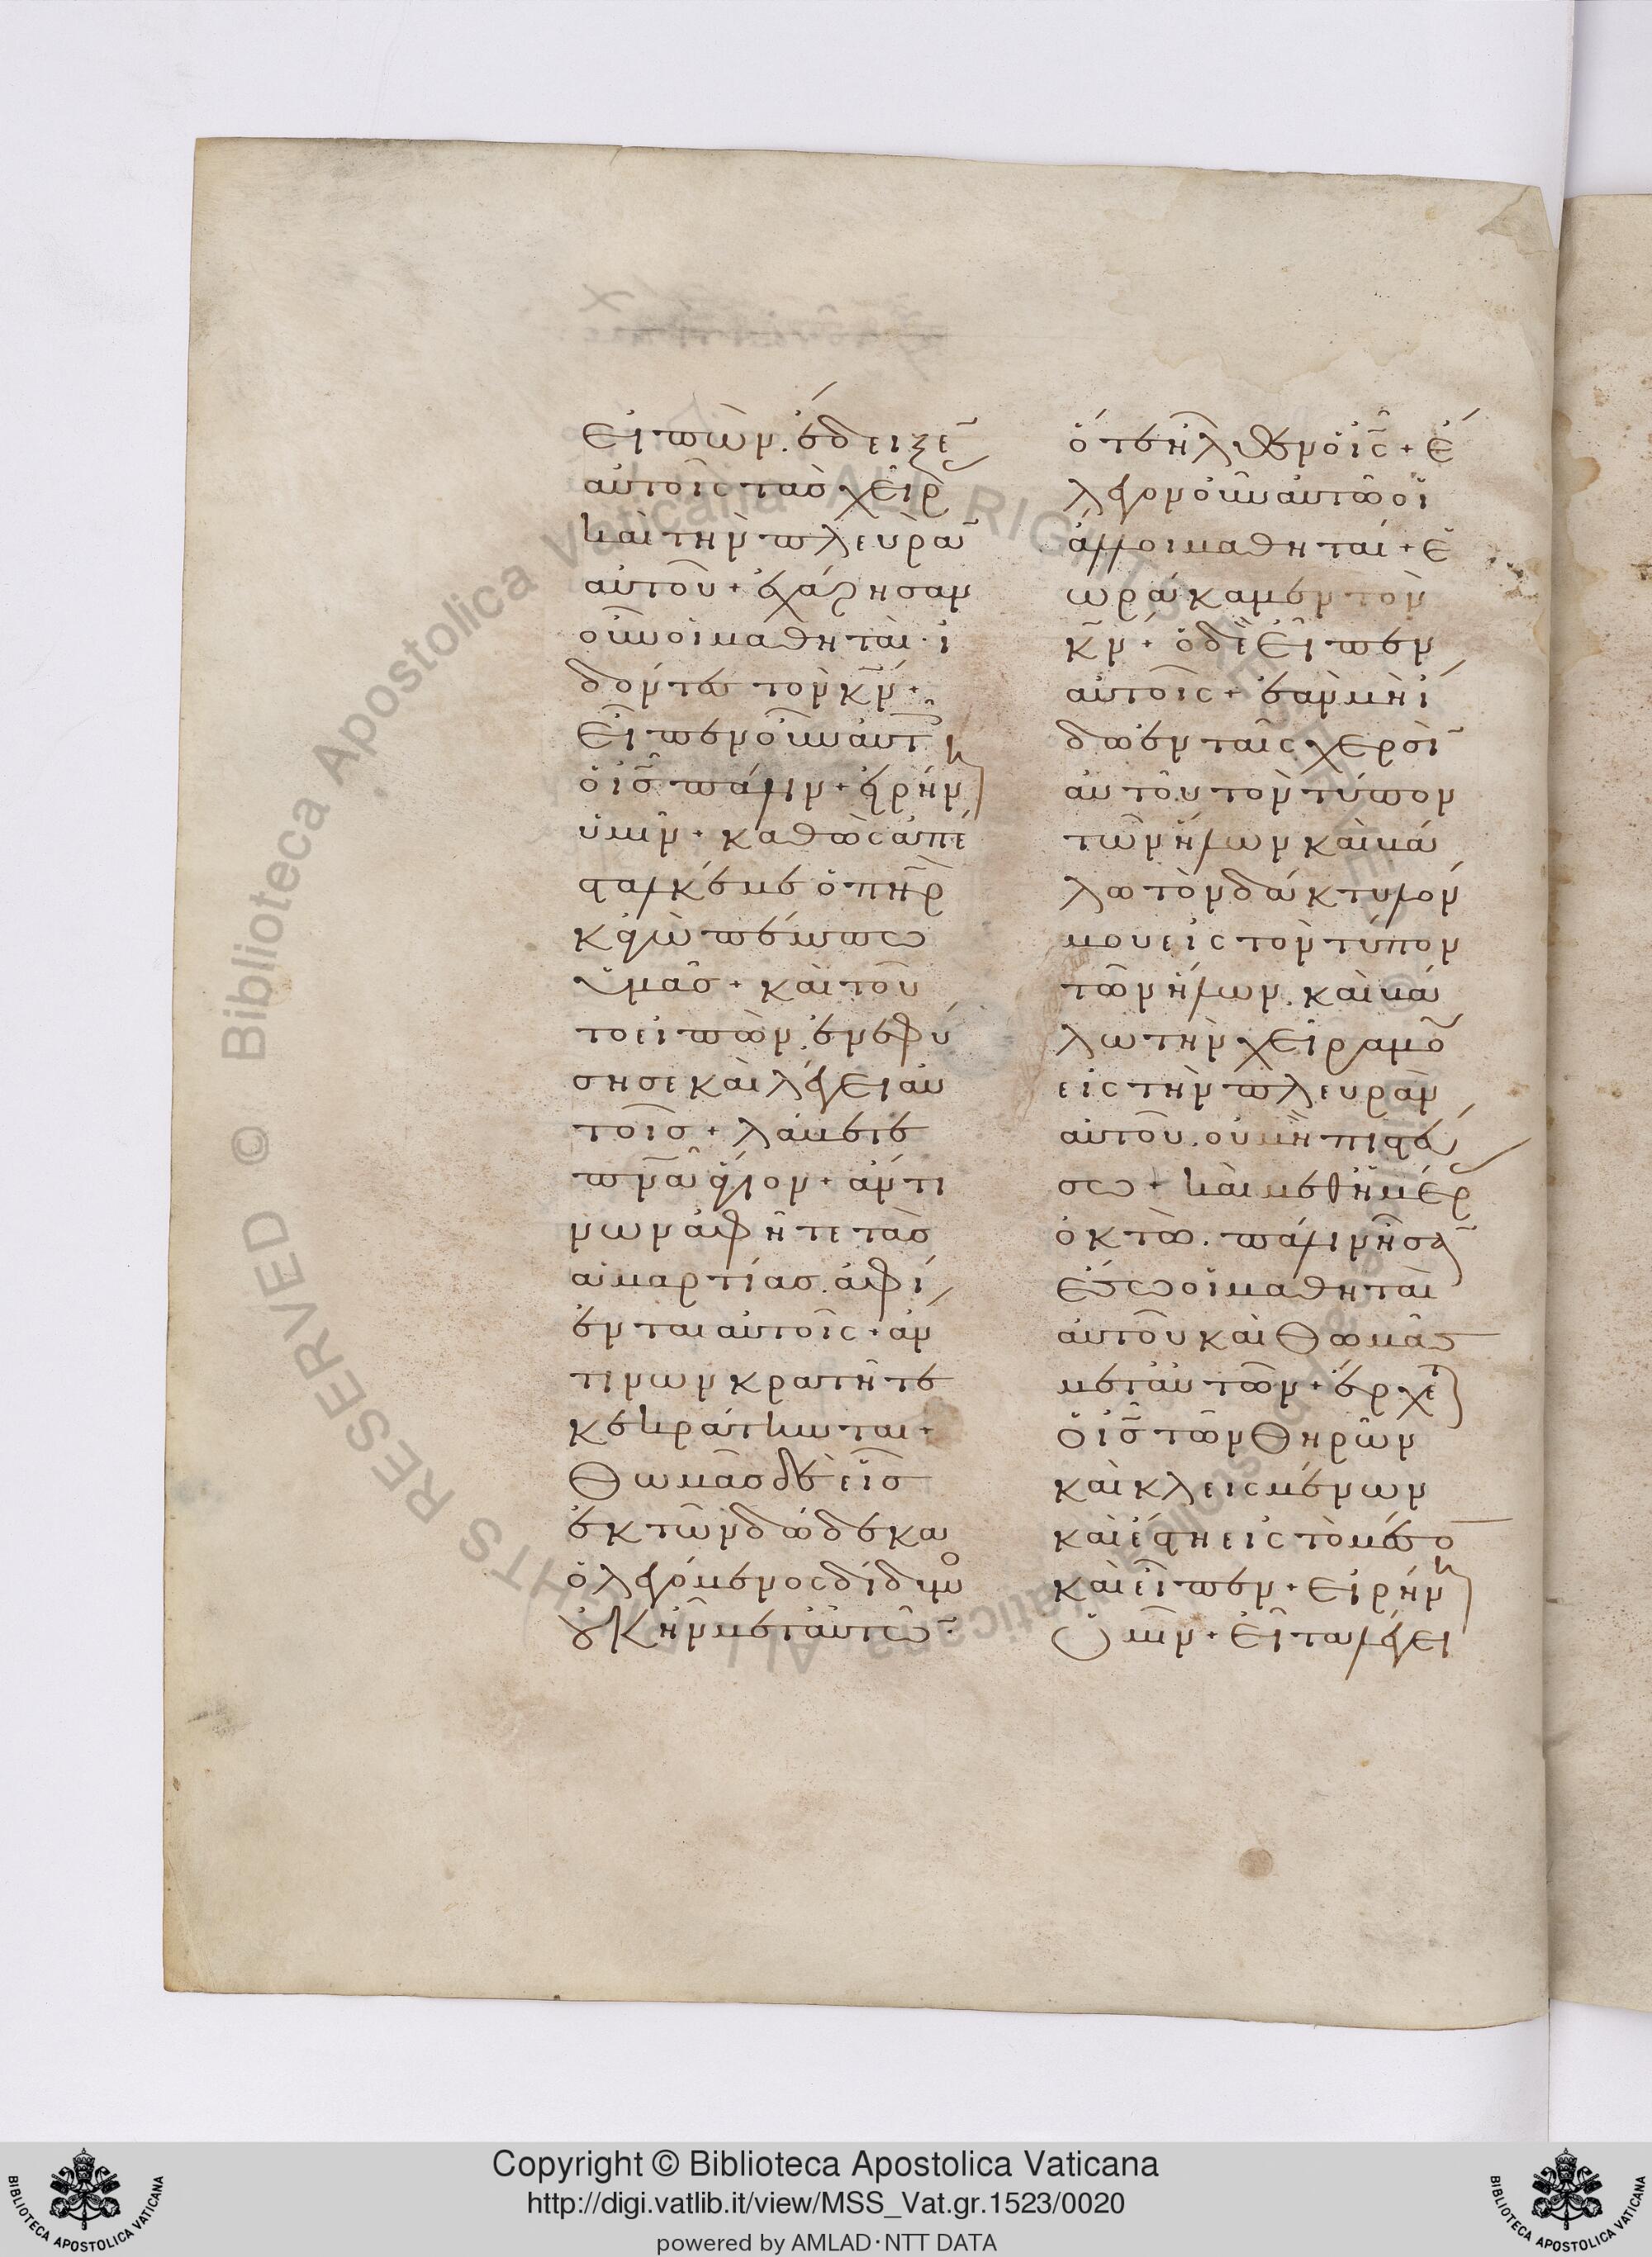 εἰπὼν. ἔδειξε̄
αὐτοῖς τὰσ χεῖρ
καὶ τὴν πλευρὰ̄
αὐτοῦ + ἐχάρησαν
οὖν οἱ μαθηταὶ. ἰ
δόντες τὸν κ̄ν +
εἶπεν οὖν αὐτ
ὁ ις̄ πάλιν + εἰρήν
ὑμῖν + καθὼς ἀπέ
σταλκέ με ὁ πη̄ρ
κἀγὼ πέμπω
ὑμᾶσ + καὶ τοῦ
το εἰπὼν. ἐνεφύ
σησε καὶ λέγει αὐ
τοῖσ + λάβετε
πν̄α ἅγιον + ἄν τι
νων ἀφῆτε τὰσ
ἁμαρτίασ. ἀφί
ενται αὐτοῖς + ἄν
τινων κρατῆτε
κεκράτηνται +
Θωμᾶσ δὲ εἷσ
ἐκ τῶν δώδεκα
ὁ λεγόμενος δίδυμο
οὐκ ἦν μετ' αὐτῶ̄.
ὅτε ἦλθεν ὁ ις̄ + ἔ
λεγον οὖν αὐτῶ οἱ
ἄλλοι μαθηταί + ἑ
ωράκαμεν τὸν
κ̄ν + ὁ δὲ εἶπεν
αὐτοῖς + ἐὰν μὴ ἴ
δω ἐν ταῖς χερσὶ̄
αὐτοῦ τὸν τύπον
τῶν ἥλων καὶ βά
λω τὸν δάκτυλόν
μου εἰς τὸν τύπον
τῶν ἥλων. καὶ βά
λω τὴν χεῖρά μο
εἰς τὴν πλευρὰν
αὐτοῦ. οὐ μὴ πιστεύ
σω + καὶ μεθ' ἡμέρ
ὀκτὼ. πάλιν ἦσα
ἔσω οἱ μαθηταὶ
αὐτοῦ καὶ Θωμᾶς
μετ' αὐτῶν + ἔρχε
ὁ ις̄ τῶν θηρῶν
κεκλεισμένων
καὶ ἔστη εἰς τὸ μέσο
καὶ εἶπεν + εἰρήν
ὑμῖν + εἶτα λέγει
Copyright © Biblioteca Apostolica Vaticana
http://digi.vatlib.it/view/MSS_Vat.gr.1523/0020
powered by AMLAD·NTT DATA